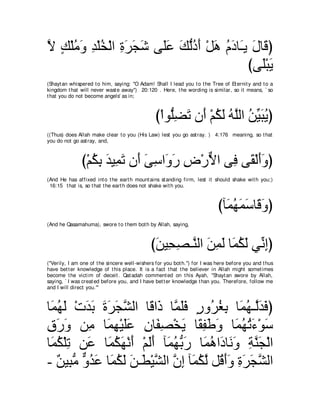 ﴿قَالَ يٰـَٔادَمُ هَلْ أَدُلُّكَ عَلَى شَجَرَةِ الْخُلْدِ وَمُلْكٍ لاَّ
يَبْلَى﴾
(Shaytan whispered to him, saying: "O Adam! Shall I lead you to the Tree of Eternity and to a
kingdom that will never waste away") 20:120 . Here, the wording is similar, so it means, `so
that you do not become angels' as in;
﴿يُبَيِّنُ اللَّهُ لَكُمْ أَن تَضِلُّواْ﴾
((Thus) does Allah make clear to you (His Law) lest you go astray. ) 4:176 meaning, so that
you do not go astray, and,
﴿وَأَلْقَى فِى الاٌّرْضِ رَوَاسِىَ أَن تَمِيدَ بِكُمْ﴾
(And He has affixed into the earth mountains standing firm, lest it should shake with you;)
16:15 that is, so that the earth does not shake with you.
﴿وَقَاسَمَهُمَآ﴾
(And he Qasamahuma), swore to them both by Allah, saying,
﴿إِنِّي لَكُمَا لَمِنَ النَّـصِحِينَ﴾
("Verily, I am one of the sincere well-wishers for you both.") for I was here before you and thus
have better knowledge of this place. It is a fact that the believer in Allah might sometimes
become the victim of deceit. Qatadah commented on this Ayah, "Shaytan swore by Allah,
saying, `I was created before you, and I have better knowledge than you. Therefore, follow me
and I will direct you.'"
﴿فَدَلَّـهُمَا بِغُرُورٍ فَلَمَّا ذَاقَا الشَّجَرَةَ بَدَتْ لَهُمَا
سَوْءَتُهُمَا وَطَفِقَا يَخْصِفَانِ عَلَيْهِمَا مِن وَرَقِ
الْجَنَّةِ وَنَادَاهُمَا رَبُّهُمَآ أَلَمْ أَنْهَكُمَا عَن تِلْكُمَا
الشَّجَرَةِ وَأَقُل لَّكُمَآ إِنَّ الشَّيْطَـنَ لَكُمَا عَدُوٌّ مُّبِينٌ -